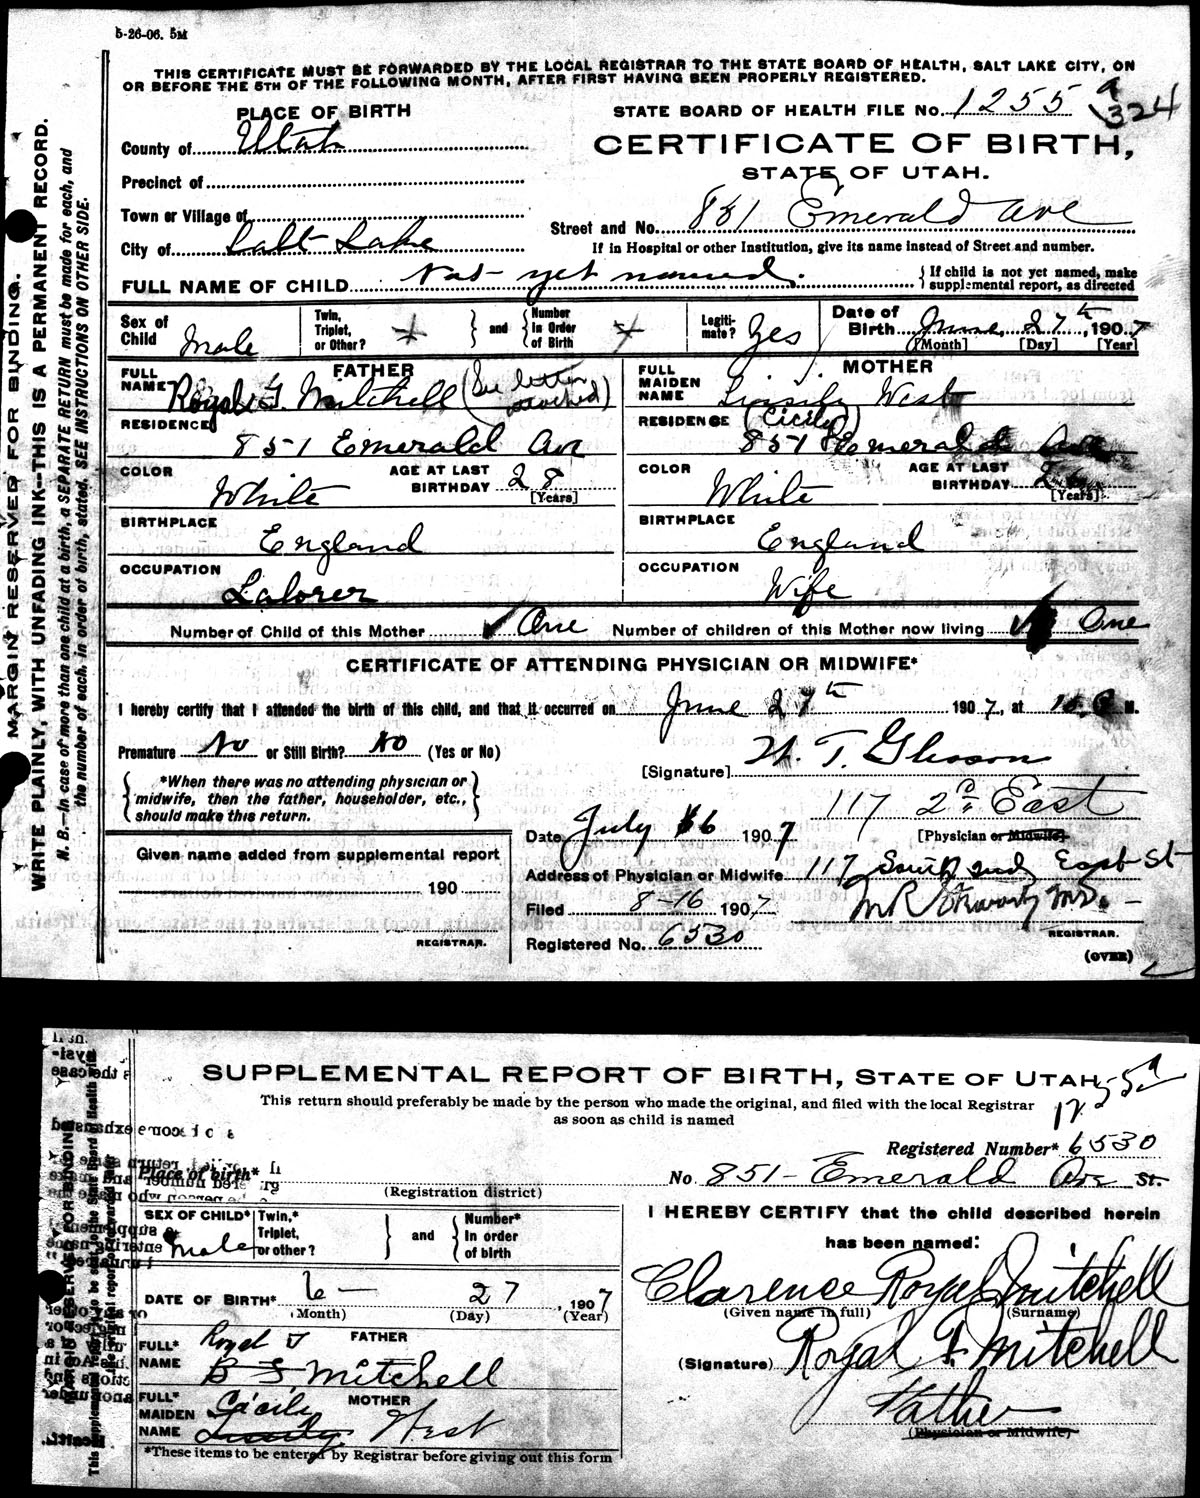 5-26-06. 5M
THIS CERTIFICATE MUST BE FORWARDED BY THE LOCAL REGISTRAR TO THE STATE BOARD OF HEALTH, SALT LAKE CITY, ON
OR BEFORE THE 5TH OF THE FOLLOWING MONTH, AFTER FIRST HAVING BEEN PROPERLY REGISTERED.
MARGIN RESERVED FOR BINDING.
WRITE PLAINLY, WITH UNFADING INK—THIS IS A PERMANENT RECORD.
N. B.—In case of more than one child at a birth, a SEPARATE RETURN must be made for each, and
the number of each, in order of birth, stated. SEE INSTRUCTIONS ON OTHER SIDE.
PLACE OF BIRTH
STATE BOARD OF HEALTH FILE No. 1255 a 324
County of Utah
CERTIFICATE OF BIRTH,
STATE OF UTAH.
Precinct of
Town or Village of
Street and No. 851 Emerald Ave
City of Salt Lake
If in Hospital or other Institution, give its name instead of Street and number.
FULL NAME OF CHILD Not yet named. { If child is not yet named, make
supplemental report, as directed
Sex of Child Male
Twin, Triplet, or Other? } and { Number In Order of Birth
Legitimate? Yes
Date of Birth June 27th, 1907
[Month] [Day] [Year]
FATHER
FULL NAME Royal F. Mitchell (See letter attached)
MOTHER
FULL MAIDEN NAME West
(Cicily)
RESIDENCE 851 Emerald Ave
RESIDENCE 851 Emerald Ave
COLOR White
AGE AT LAST BIRTHDAY 28 [Years]
COLOR White
AGE AT LAST BIRTHDAY [Years]
BIRTHPLACE England
BIRTHPLACE England
OCCUPATION Laborer
OCCUPATION Wife
Number of Child of this Mother One Number of children of this Mother now living One
CERTIFICATE OF ATTENDING PHYSICIAN OR MIDWIFE*
I hereby certify that I attended the birth of this child, and that it occurred on June 27th 1907, at M.
Premature No or Still Birth? No (Yes or No)
[Signature] T.
*When there was no attending physician or
midwife, then the father, householder, etc.,
should make this return.
117 2nd East
Date July 1907
[Physician or Midwife]
Given name added from supplemental report
Address of Physician or Midwife 117 South 2nd East St
190
Filed 8-16 1907
REGISTRAR.
REGISTRAR.
Registered No. 6530
(OVER)
SUPPLEMENTAL REPORT OF BIRTH, STATE OF UTAH
1255 a
This return should preferably be made by the person who made the original, and filed with the local Registrar
as soon as child is named
Registered Number* 6530
Place of birth*
(Registration district)
No. 851 Emerald Ave St.
SEX OF CHILD* Male
Twin,* Triplet, or other? } and { Number* In order of birth
I HEREBY CERTIFY that the child described herein
has been named:
DATE OF BIRTH* 6 - 27, 1907
(Month) (Day) (Year)
Clarence Royal Mitchell
(Given name in full) (Surname)
Royal F
FATHER
FULL* NAME B F Mitchell
(Signature) Royal F. Mitchell
Father
(Physician or Midwife)
MOTHER
FULL* MAIDEN NAME Cicily West
*These items to be entered by Registrar before giving out this form